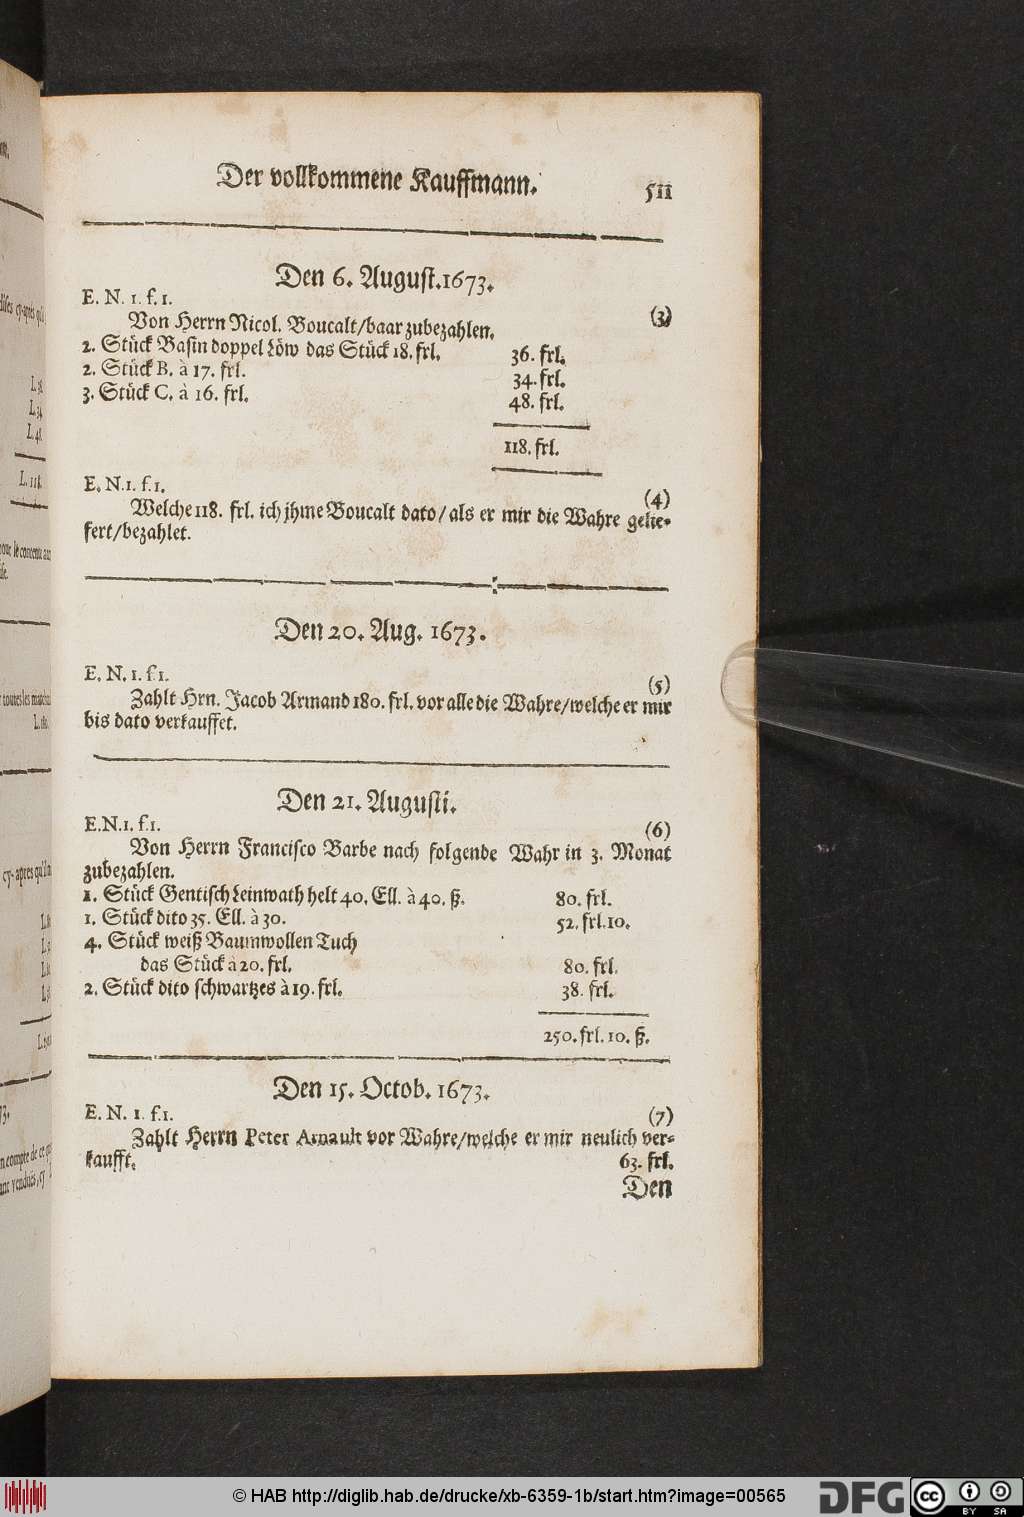 Der vollkommene Kauffmann.
511
Den 6. August. 1673.
E. N. 1. f. 1.
(3)
Von Herrn Nicol. Boucalt/baar zubezahlen.
2. Stück Basin doppel Löw das Stück 18. frl. 36. frl.
2. Stück B. à 17. frl. 34. frl.
3. Stück C. à 16. frl. 48. frl.
118. frl.
E. N. 1. f. 1.
(4)
Welche 118. frl. ich jhme Boucalt dato/ als er mir die Wahre gelie-
fert/bezahlet.
Den 20. Aug. 1673.
E. N. 1. f 1.
(5)
Zahlt Hrn. Jacob Armand 180. frl. vor alle die Wahre/welche er mir
bis dato verkauffet.
Den 21. Augusti.
E.N.1. f.1.
(6)
Von Herrn Francisco Barbe nach folgende Wahr in 3. Monat
zubezahlen.
1. Stück Gentisch Leinwath helt 40. Ell. à 40. ß. 80. frl.
1. Stück dito 35. Ell. à 30. 52. frl. 10.
4. Stück weiß Baumwollen Tuch
das Stück à 20. frl. 80. frl.
2. Stück dito schwartzes à 19. frl. 38. frl.
250. frl. 10. ß.
Den 15. Octob. 1673.
E. N. 1. f.1.
(7)
Zahlt Herrn Peter Arnault vor Wahre/welche er mir neulich ver-
kaufft. 63. frl.
Den
L. 118.
© HAB http://diglib.hab.de/drucke/xb-6359-1b/start.htm?image=00565
DFG
cc
BY SA